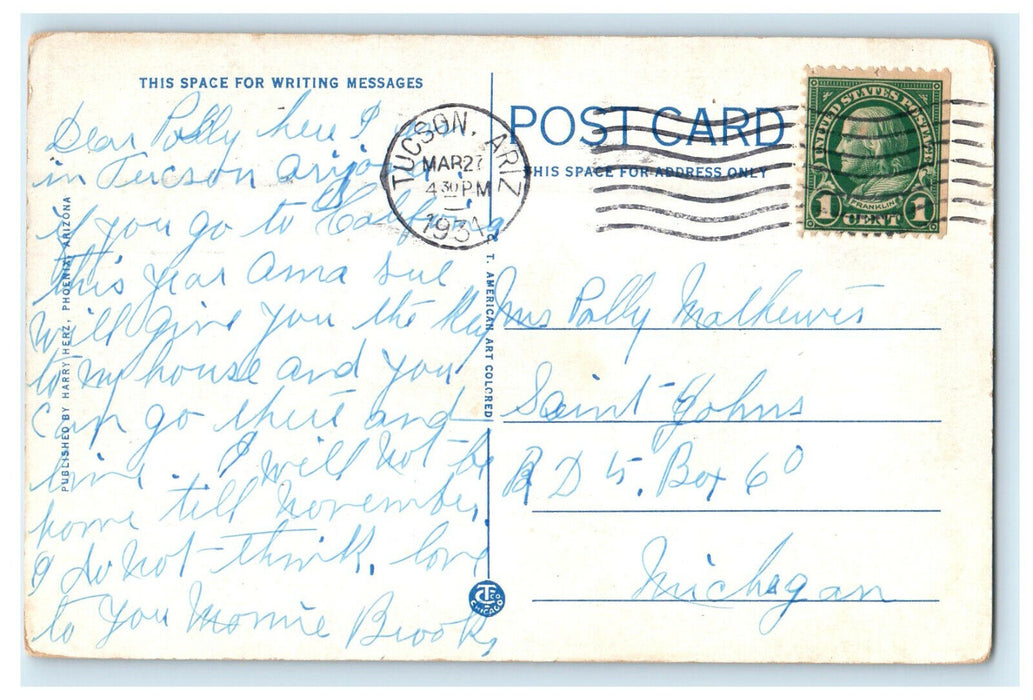 THIS SPACE FOR WRITING MESSAGES
Dear Polly here I am
in Tucson Arizona
if you go to California
this year Anna sue
will give you the key
to my house and you
can go there and
live. I will not be
home till November.
I do not think, love
to you Monnie Brooks
PUBLISHED BY HARRY HERZ, PHOENIX, ARIZONA
C. T. AMERICAN ART COLORED
TUCSON, ARIZ
MAR 27
4 30 PM
1934
POST CARD
THIS SPACE FOR ADDRESS ONLY
UNITED STATES POSTAGE
FRANKLIN
1 CENT 1
Mrs Polly Mathews
Saint Johns
R D 5, Box 60
Michigan
CHICAGO